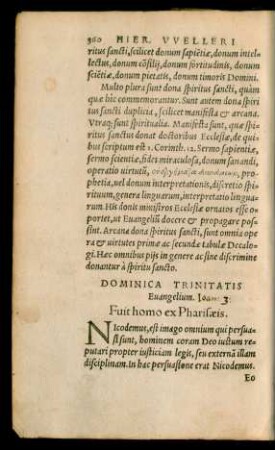 960 HIER. VVELLERI
ritus sancti, scilicet donum sapiẽtiæ, donum intel-
lectus, donum cõsilij, donum fortitudinis, donum
sciẽtiæ, donum pietatis, donum timoris Domini.
Multo plura sunt dona spiritus sancti, quàm
quæ hîc commemorantur. Sunt autem dona spiri
tus sancti duplicia, scilicet manifesta & arcana.
Vtraq; sunt spiritualia. Manifesta sunt, quæ spiri-
tus sanctus donat doctoribus Ecclesiæ, de qui-
bus scriptum est 1. Corinth. 12. Sermo sapientiæ,
sermo scientiæ, fides miraculosa, donum sanandi,
operatio virtutũ, pro-
phetia, uel donum interpretationis, discretio spi-
rituum, genera linguarum, interpretatio linguа-
rum. His donis ministros Ecclesiæ ornatos esse o-
portet, ut Euangeliũ docere & propagare pos-
sint. Arcana dona spiritus sancti, sunt omnia ope-
ra & uirtutes primæ ac secundæ tabulæ Decalo-
gi. Hæc omnibus pijs in genere ac sine discrimine
donantur à spiritu sancto.
DOMINICA TRINITATIS
Euangelium. Ioan: 3:
Fuit homo ex Pharisæis.
Nicodemus, est imago omnium qui persua
si sunt, hominem coram Deo iustum re-
putari propter iusticiam legis, seu externã illam
disciplinam. In hac persuasione erat Nicodemus.
Eo